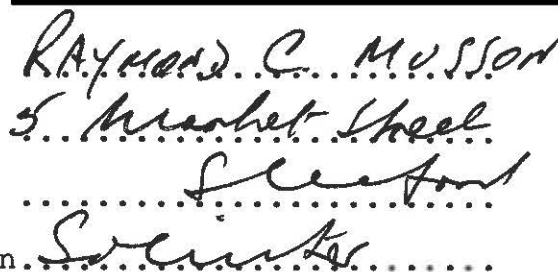 RAYMOND C. MUSSON
5 Market Street
Sleaford
n Solicitor